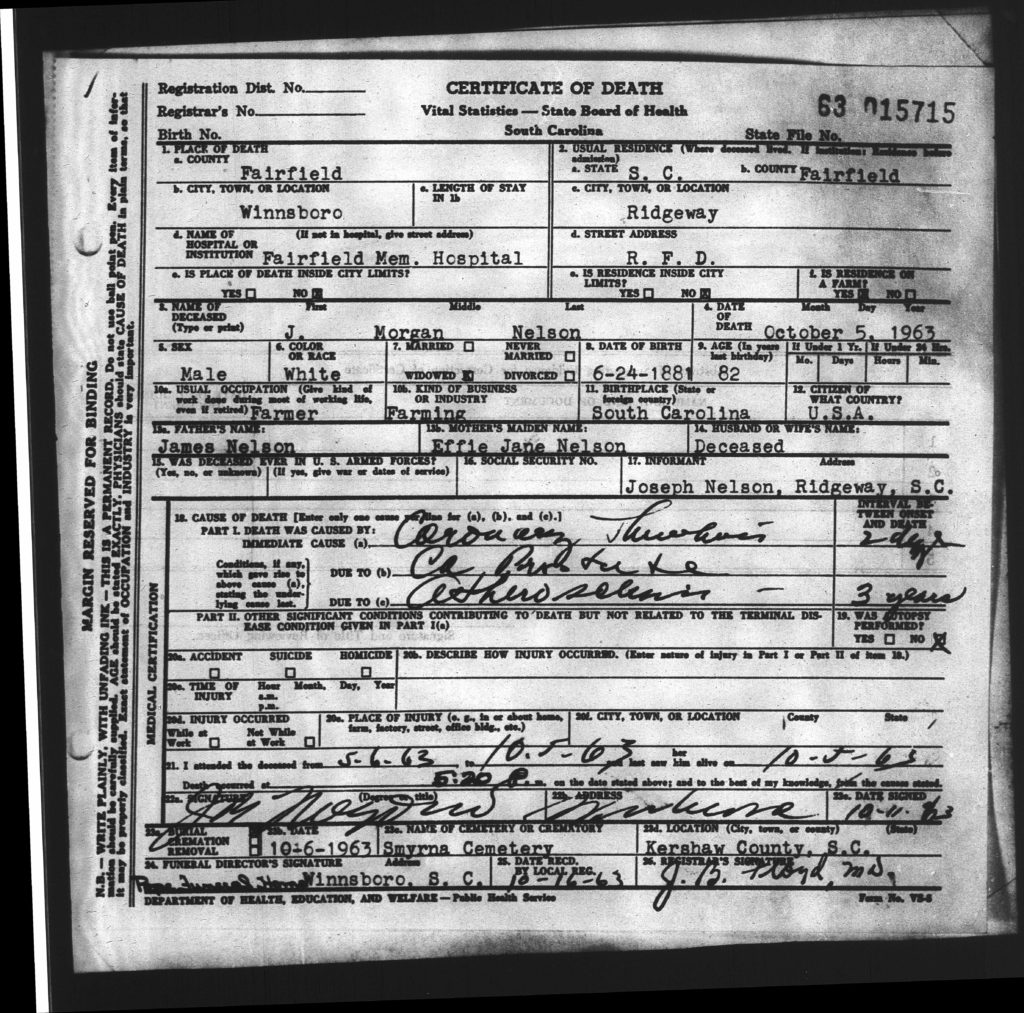 Registration Dist. No.
CERTIFICATE OF DEATH
Registrar's No.
Vital Statistics — State Board of Health
63 015715
Birth No.
South Carolina
State File No.
1. PLACE OF DEATH
a. COUNTY
Fairfield
2. USUAL RESIDENCE (Where deceased lived. If institution: Residence before admission)
a. STATE S. C. b. COUNTY Fairfield
b. CITY, TOWN, OR LOCATION
Winnsboro
c. LENGTH OF STAY IN 1b
c. CITY, TOWN, OR LOCATION
Ridgeway
d. NAME OF HOSPITAL OR INSTITUTION (If not in hospital, give street address)
Fairfield Mem. Hospital
d. STREET ADDRESS
R. F. D.
e. IS PLACE OF DEATH INSIDE CITY LIMITS?
YES ☐ NO ☒
e. IS RESIDENCE INSIDE CITY LIMITS?
YES ☐ NO ☒
f. IS RESIDENCE ON A FARM?
YES ☒ NO ☐
3. NAME OF DECEASED (Type or print)
First Middle Last
J. Morgan Nelson
4. DATE OF DEATH
Month Day Year
October 5, 1963
5. SEX
Male
6. COLOR OR RACE
White
7. MARRIED ☐ NEVER MARRIED ☐
WIDOWED ☒ DIVORCED ☐
8. DATE OF BIRTH
6-24-1881
9. AGE (In years last birthday)
82
If Under 1 Yr. If Under 24 Hrs.
Mo. Days Hours Min.
10a. USUAL OCCUPATION (Give kind of work done during most of working life, even if retired)
Farmer
10b. KIND OF BUSINESS OR INDUSTRY
Farming
11. BIRTHPLACE (State or foreign country)
South Carolina
12. CITIZEN OF WHAT COUNTRY?
U.S.A.
13a. FATHER'S NAME:
James Nelson
13b. MOTHER'S MAIDEN NAME:
Effie Jane Nelson
14. HUSBAND OR WIFE'S NAME:
Deceased
15. WAS DECEASED EVER IN U. S. ARMED FORCES?
(Yes, no, or unknown) (If yes, give war or dates of service)
16. SOCIAL SECURITY NO.
17. INFORMANT Address
Joseph Nelson, Ridgeway, S.C.
18. CAUSE OF DEATH [Enter only one cause per line for (a), (b), and (c).]
INTERVAL BETWEEN ONSET AND DEATH
PART I. DEATH WAS CAUSED BY:
IMMEDIATE CAUSE (a) Coronary 2 days
Conditions, if any, which gave rise to above cause (a), stating the underlying cause last.
DUE TO (b) Ca
DUE TO (c) 3 years
PART II. OTHER SIGNIFICANT CONDITIONS CONTRIBUTING TO DEATH BUT NOT RELATED TO THE TERMINAL DISEASE CONDITION GIVEN IN PART I(a)
19. WAS AUTOPSY PERFORMED?
YES ☐ NO ☒
20a. ACCIDENT SUICIDE HOMICIDE
20b. DESCRIBE HOW INJURY OCCURRED. (Enter nature of injury in Part I or Part II of item 18.)
20c. TIME OF INJURY Hour Month, Day, Year
a.m.
p.m.
20d. INJURY OCCURRED
While at Work ☐ Not While at Work ☐
20e. PLACE OF INJURY (e. g., in or about home, farm, factory, street, office bldg., etc.)
20f. CITY, TOWN, OR LOCATION County State
21. I attended the deceased from 5-6-63 to 10-5-63, last saw her him alive on 10-5-63
Death occurred at 5:20 P. m. on the date stated above; and to the best of my knowledge, from the causes stated.
22a. SIGNATURE (Degree or title)
22b. ADDRESS
22c. DATE SIGNED
10-11-63
23a. BURIAL CREMATION REMOVAL
23b. DATE
10-6-1963
23c. NAME OF CEMETERY OR CREMATORY
Smyrna Cemetery
23d. LOCATION (City, town, or county) (State)
Kershaw County, S.C.
24. FUNERAL DIRECTOR'S SIGNATURE Address
Pope Funeral Home Winnsboro, S. C.
25. DATE RECD. BY LOCAL REG.
10-16-63
26. REGISTRAR'S SIGNATURE
J. B. Floyd, MD.
DEPARTMENT OF HEALTH, EDUCATION, AND WELFARE — Public Health Service
Form No. VS-5
MEDICAL CERTIFICATION
MARGIN RESERVED FOR BINDING
N.B.—WRITE PLAINLY, WITH UNFADING INK—THIS IS A PERMANENT RECORD. Do not use ball point pen. Every item of information should be carefully supplied. AGE should be stated EXACTLY. PHYSICIANS should state CAUSE OF DEATH in plain terms, so that it may be properly classified. Exact statement of OCCUPATION and INDUSTRY is very important.